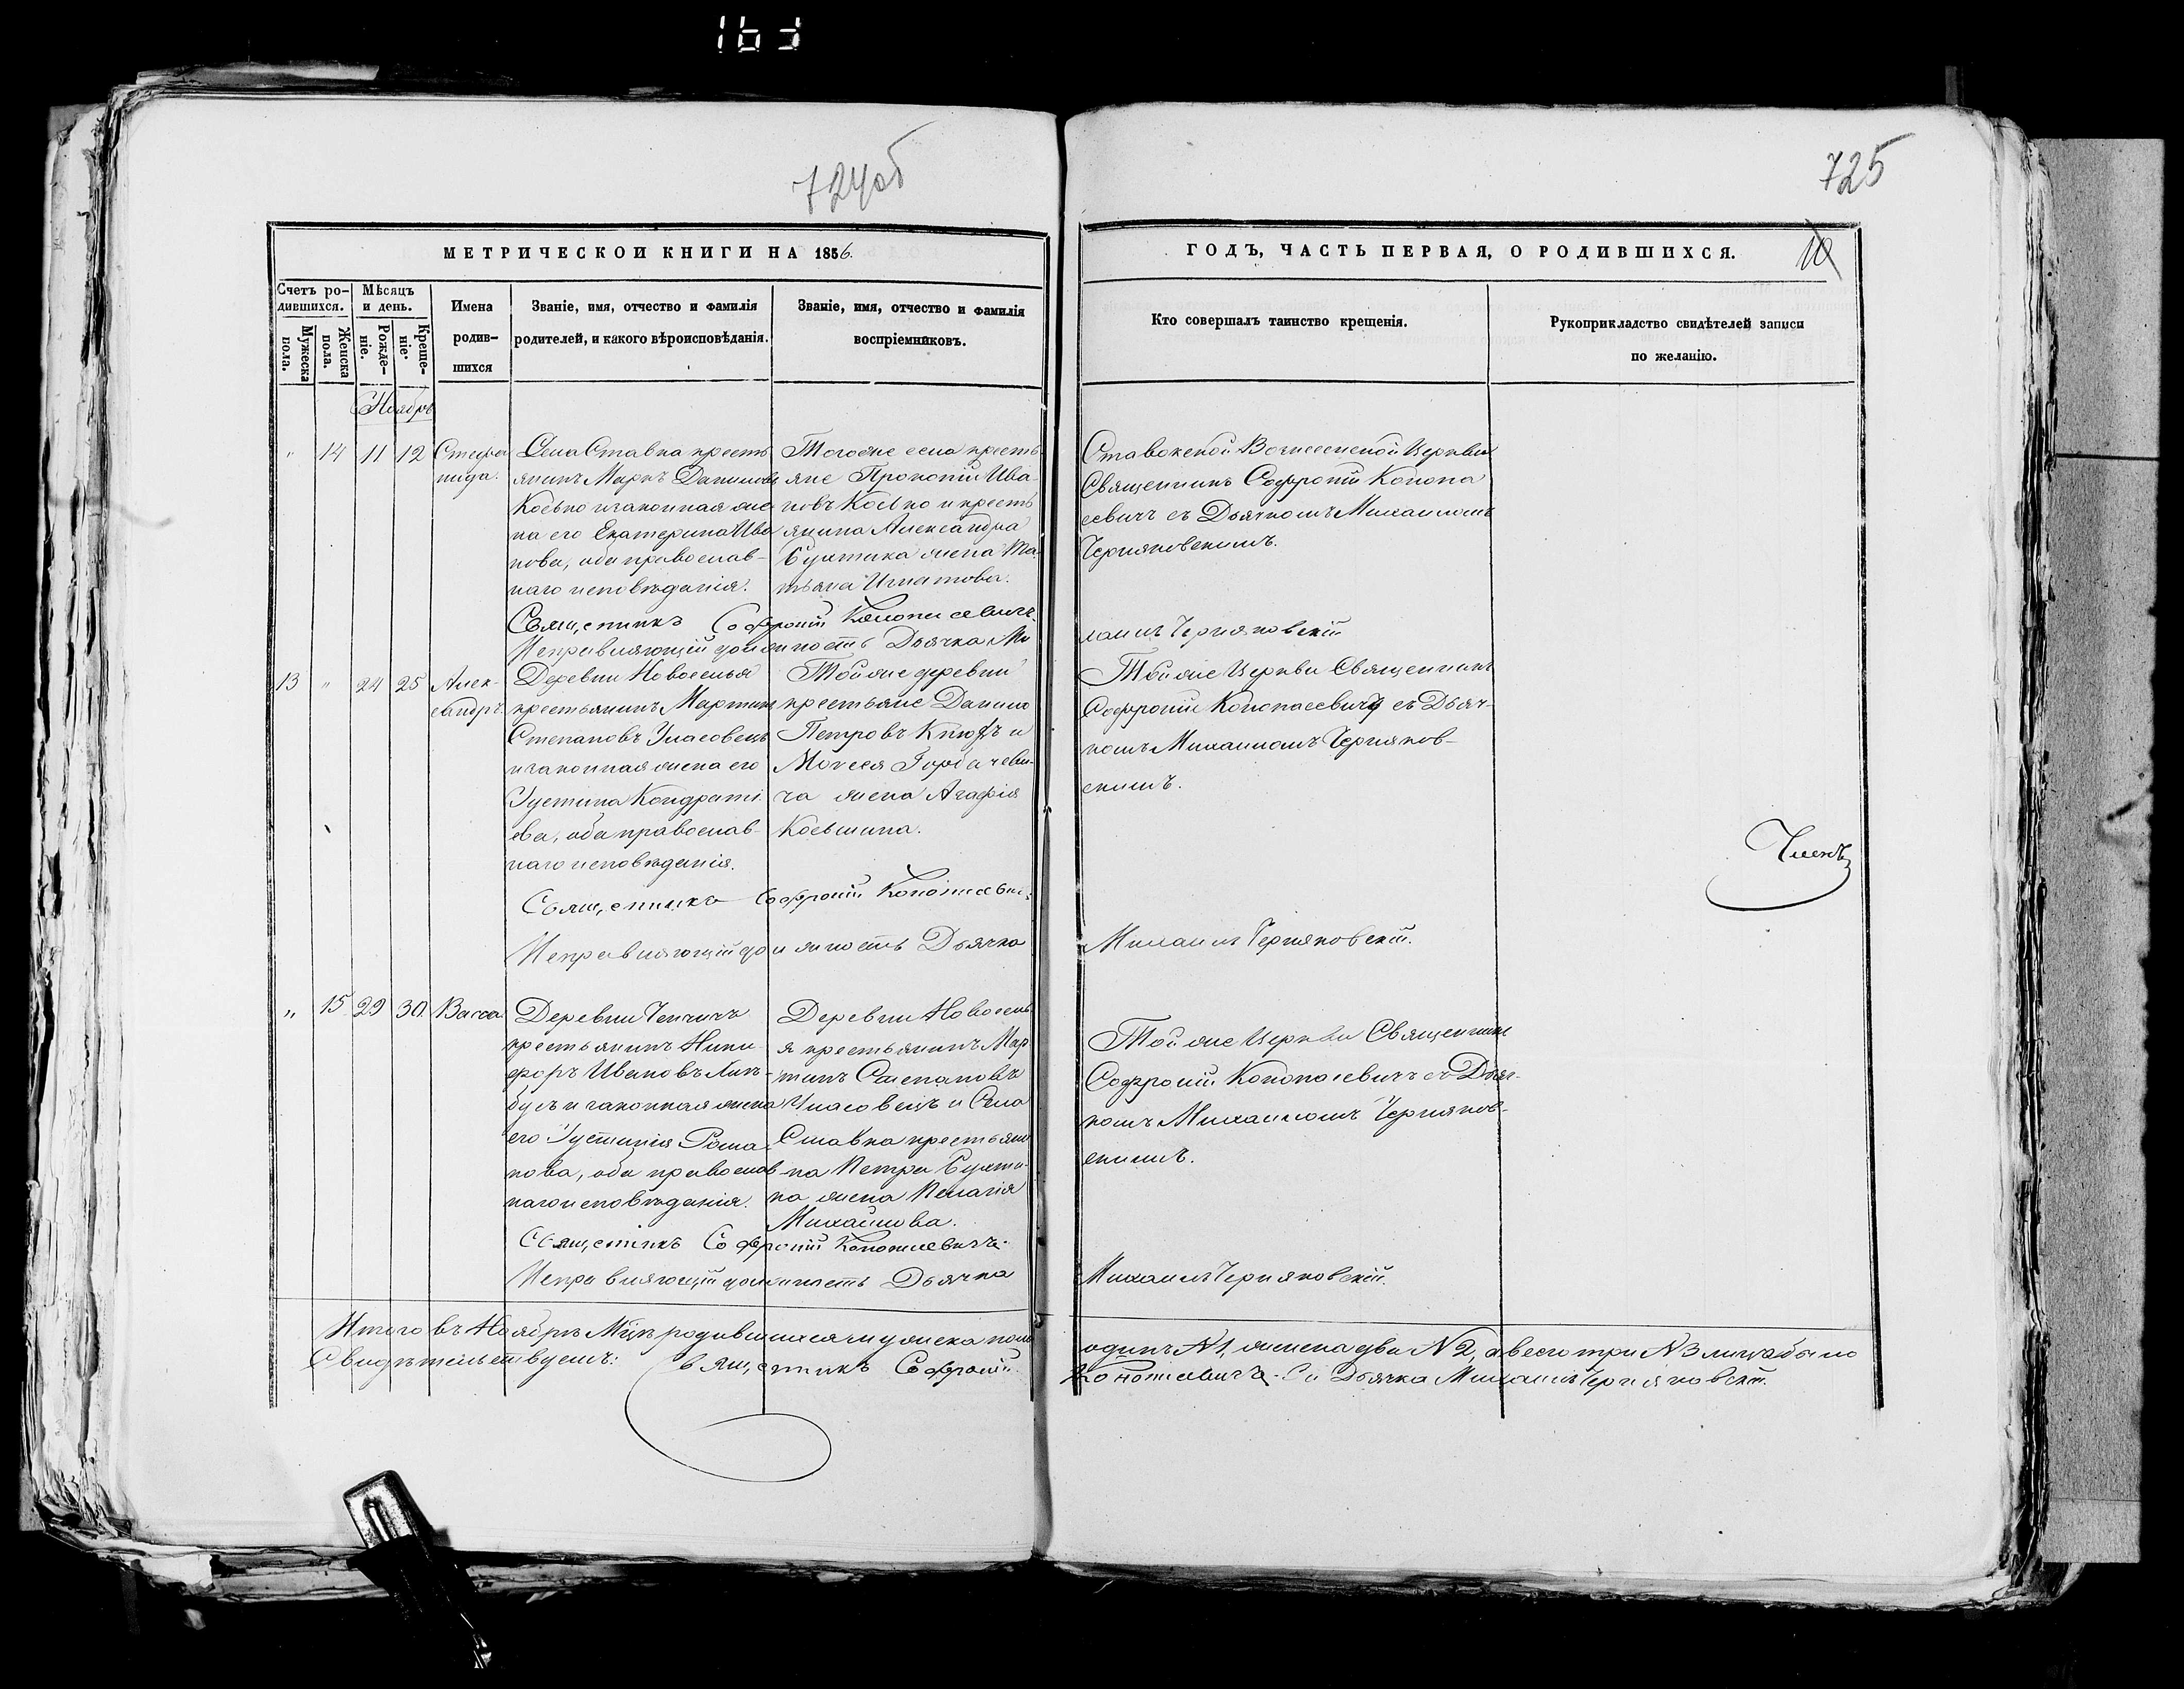 724об
725
МЕТРИЧЕСКОЙ КНИГИ НА 1856.
ГОДЪ, ЧАСТЬ ПЕРВАЯ, О РОДИВШИХСЯ.
10
Счетъ ро-
дившихся.
Мужеска пола.
Женска пола.
Мѣсяцъ
и день.
Рожде-
ніе.
Креще-
ніе.
Имена
родив-
шихся
Званіе, имя, отчество и фамилія
родителей, и какого вѣроисповѣданія.
Званіе, имя, отчество и фамилія
воспріемниковъ.
Кто совершалъ таинство крещенія.
Рукоприкладство свидѣтелей записи
по желанію.
Ноябрь
" 14 11 12
Стефа
нида.
Села Ставка кресть
янинъ Маркъ Даниловъ
Косько и законная же
на его Екатерина Ива
нова, оба православ-
наго исповѣданія.
Тогоже села кресть
яне Прокопій Ива
новъ Косько и кресть
янина Александра
Бухтика жена Та
тьяна Игнатова.
Ставокской Вознесенской Церкви
Священникъ Софроній Конопа
севичъ съ Дьячкомъ Михаиломъ
Черняковскимъ.
Священникъ Софроній Конопасевичъ.
Исправляющій должность Дьячка Ми
хаилъ Черняковскій
13 " 24 25
Алек-
сандръ.
Деревни Новоселья
крестьянинъ Мартинъ
Степановъ Уласовецъ
и законная жена его
Устина Кондрати
ева, оба православ-
наго исповѣданія.
Тойже деревни
крестьяне Данило
Петровъ и
Моисея Горбачеви-
ча жена Агафія
Косьмина.
Тойже Церкви Священникъ
Софроній Конопасевичъ съ Дьяч-
комъ Михаиломъ Черняков-
скимъ.
Священникъ Софроній Конопасевичъ.
Исправляющій должность Дьячка
Михаилъ Черняковскій.
" 15 29 30 Васса
Деревни
крестьянинъ Ники-
форъ Ивановъ
и законная жена
его Устинія Рома-
нова, оба православ
наго исповѣданія.
Деревни Новосель
я крестьянинъ Мар
тинъ Степановъ
Уласовецъ и Села
Ставка крестьяни
на Петра Бухти-
ка жена Пелагія
Михайлова.
Тойже Церкви Священникъ
Софроній Конопасевичъ съ Дьяч-
комъ Михаиломъ Черняков-
скимъ.
Священникъ Софроній Конопасевичъ.
Исправляющій должность Дьячка
Михаилъ Черняковскій.
Итого въ Ноябрѣ Мцѣ родившихся мужеска пола
одинъ №1, женска два №2, а всего три №3
Свидѣтельствуемъ: Священникъ Софроній
Конопасевичъ. Дьячка Михаилъ Черняковскій.